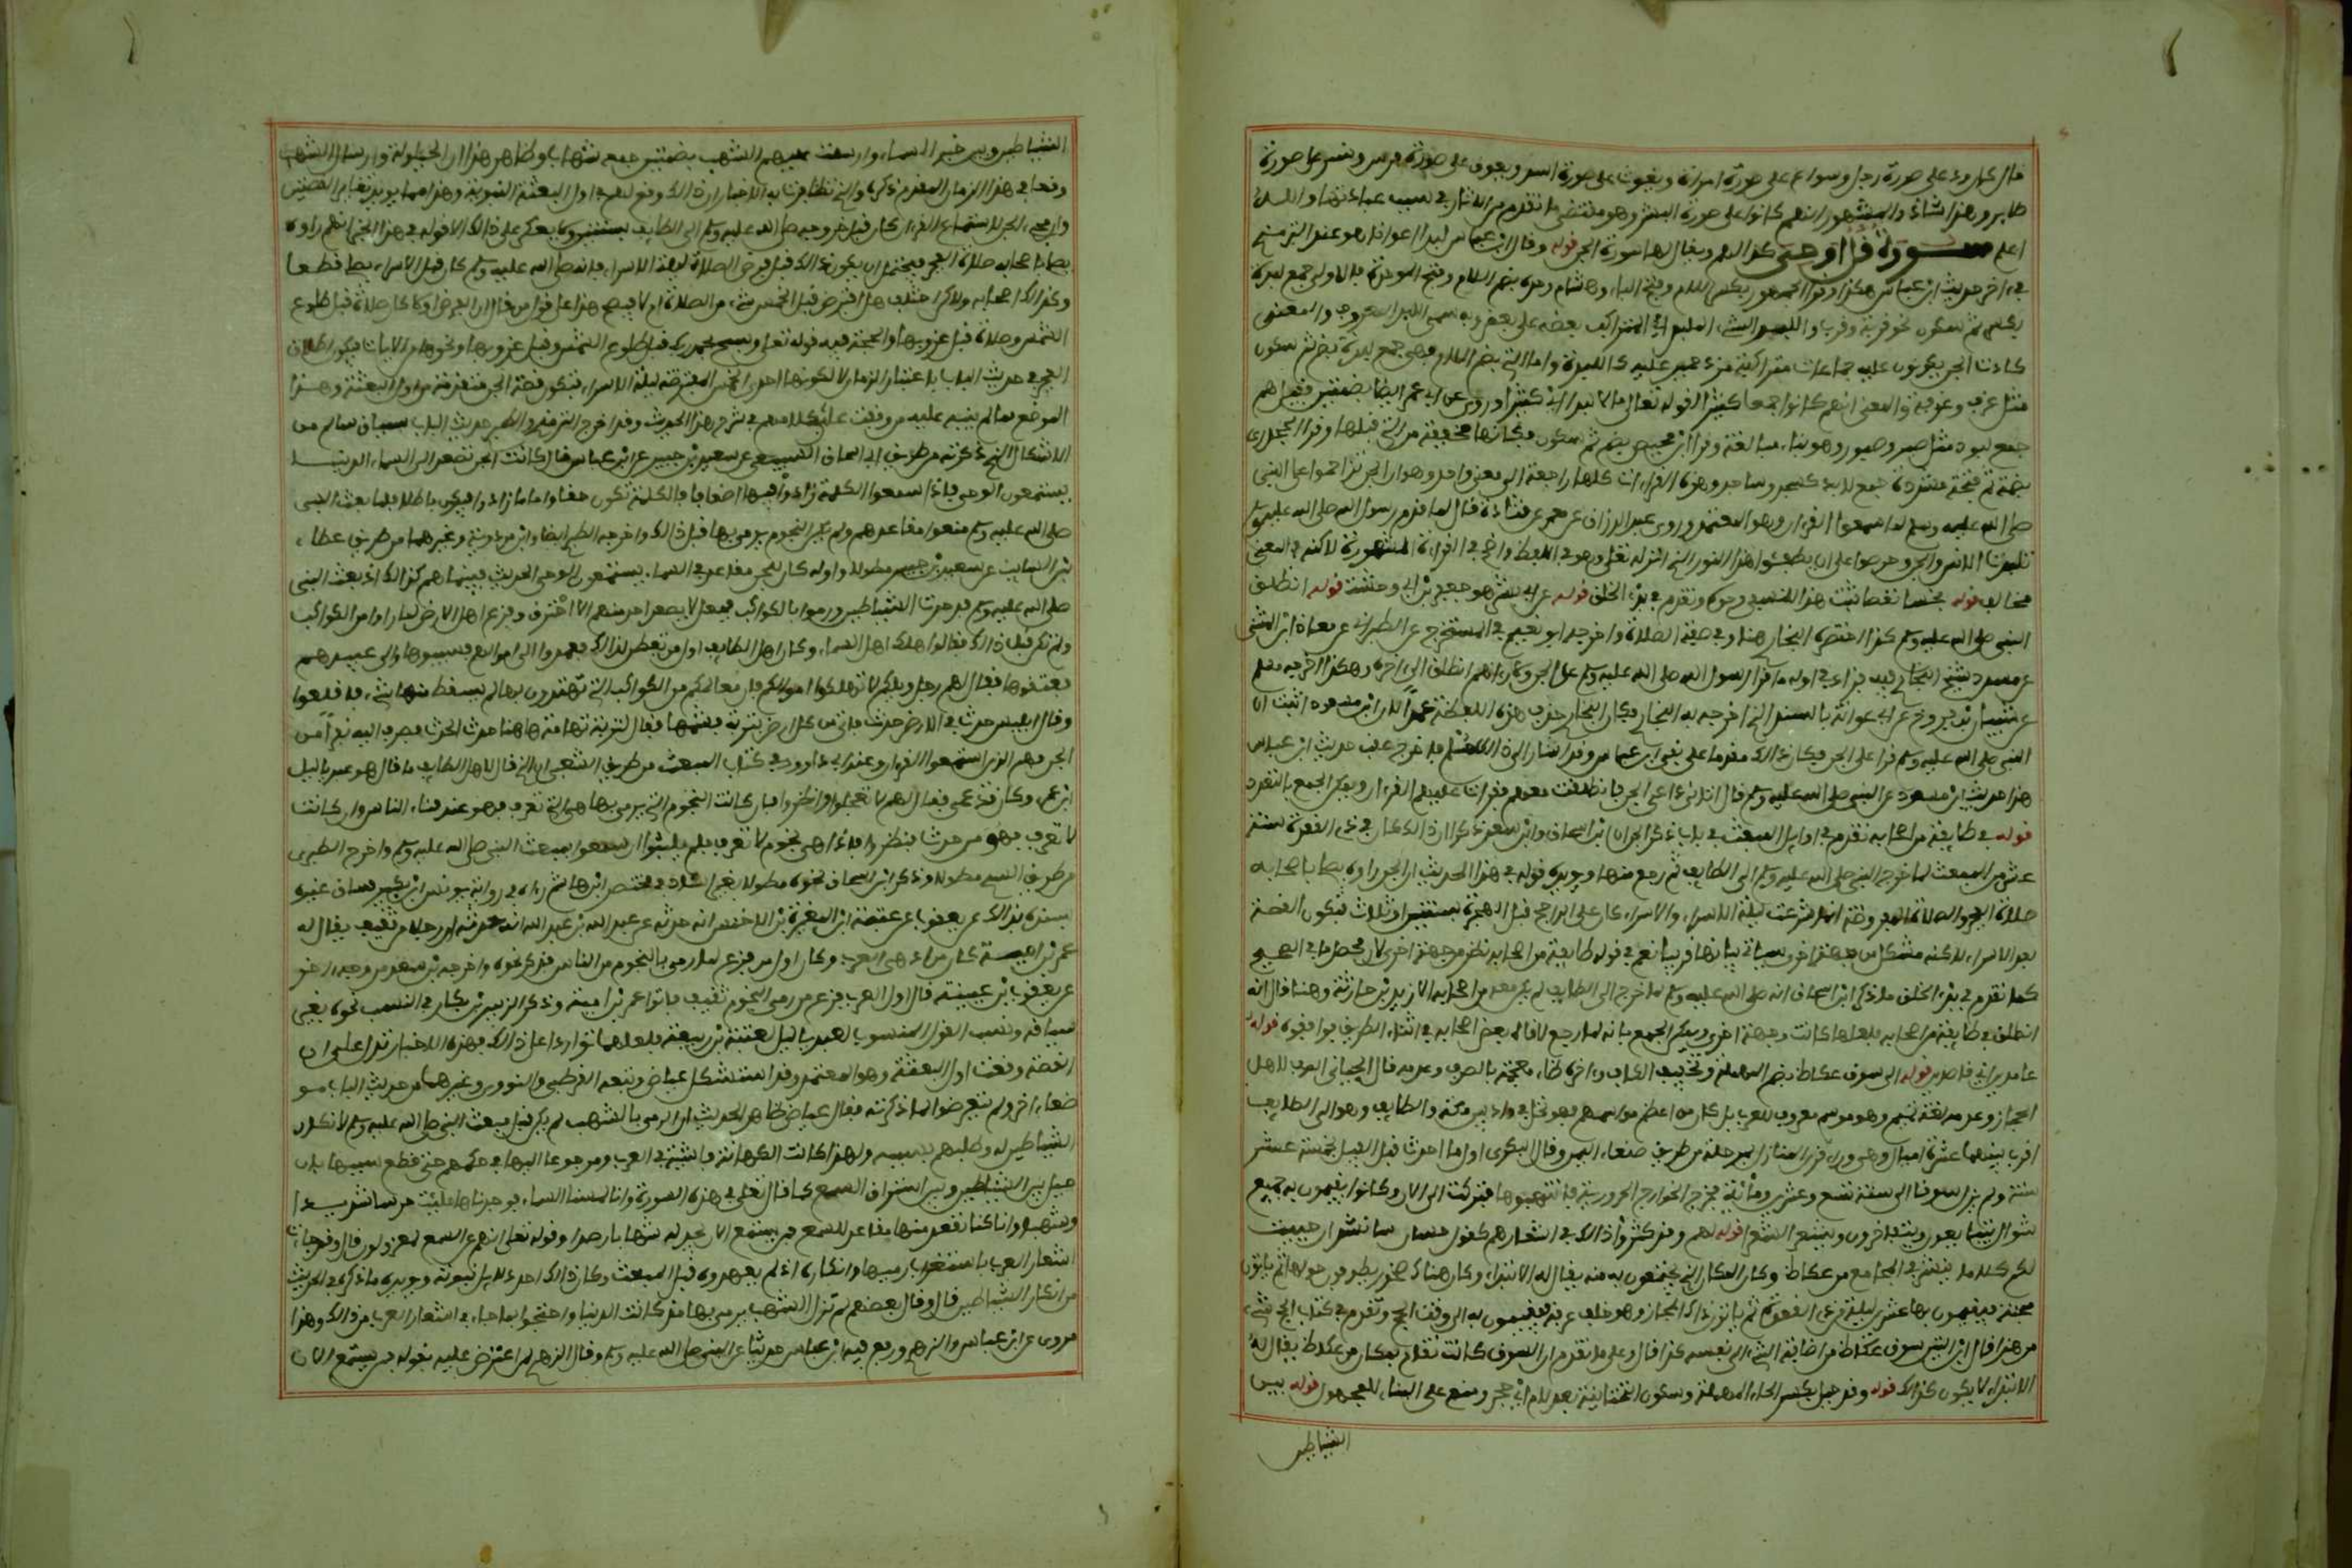 قال كان ود على صورة رجل وسواع على صورة امراة ويغوث على صورة اسد ويعوق على صورة فرس ونسر على صورة
طاير وهذا شاذ والمشهور انهم كانوا على صورة البشر وهو مقتضى ما تقدم من الاثار في سبب عبادتها والله
اعلم سورة قل اوحي كذا لهم ويقال لها سورة الجن قوله وقال ابن عباس لبدا اعوانا هو عند الترمذي
في اخر حديث ابن عباس هكذا وقرا الجمهور بكسر اللام وفتح الباء وهشام وحده بضم اللام وفتح الموحدة فالاولى جمع لبدة
بكسر ثم سكون نحو قربة وقرب واللبدة الشيء الملبد اي المتراكب بعضه على بعض وبه سمي اللبد المعروف والمعنى
كادت الجن يكونون عليه جماعات متراكبة مزدحمين عليه كاللبدة واما التي بضم اللام فهي جمع لبدة بضم ثم سكون
مثل غرفة وغرف والمعنى انهم كانوا جمعا كثيرا كقوله تعالى مالا لبدا اي كثيرا وروي عن ابي عمرو ايضا بضمتين فقيل هي
جمع لبود مثل صبر وصبور وهو بناء مبالغة وقرا ابن محيصن بضم ثم سكون فكانها مخففة من التي قبلها وقرا الجحدري
بضمة ثم فتحة مشددة جمع لابد كسجد وساجد وهذه القراءات كلها راجعة الى معنى واحد وهو ان الجن تزاحموا على النبي
صلى الله عليه وسلم لما سمعوا القرءان وهو المعتمد وروى عبد الرزاق عن معمر عن قتادة قال لما قام رسول الله صلى الله عليه وسلم
تلبدت الانس والجن وحرصوا على ان يطفئوا هذا النور الذي انزله الله تعلى وهو في اللفظ واضح في القراءة المشهورة لاكنه في المعنى
مخالف قوله بخسا نقصا ثبت هذا للنسفي وحده وتقدم في بدء الخلق قوله عن ابي بشر هو جعفر بن ابي وحشية قوله انطلق
النبي صلى الله عليه وسلم كذا اختصره البخاري هنا وفي صفة الصلاة واخرجه ابو نعيم في المستخرج عن الطبراني عن معاذ ابن المثنى
عن مسدد شيخ البخاري فيه فزاد في اوله ما قرا رسول الله صلى الله عليه وسلم على الجن وما رءاهم انطلق الى اخره وهكذا اخرجه مسلم
عن شيبان بن فروخ عن ابي عوانة بالسند الذي اخرجه به البخاري فكان البخاري حذف هذه اللفظة عمدا لان ابن مسعود اثبت ان
النبي صلى الله عليه وسلم قرا على الجن فكان ذالك مقدما على نفي ابن عباس وقد اشار الى ذالك مسلم فاخرج عقب حديث ابن عباس
هذا حديث ابن مسعود عن النبي صلى الله عليه وسلم قال اتاني داعي الجن فانطلقت معه فقرات عليهم القرءان ويمكن الجمع بالتعدد
قوله في طايفة من اصحابه تقدم في اوايل المبعث في باب ذكر الجن ان ابن اسحاق وابن سعد ذكرا ان ذالك كان في ذي القعدة سنة
عشر من المبعث لما خرج النبي صلى الله عليه وسلم الى الطايف ثم رجع منها ويؤيده قوله في هذا الحديث ان الجن راوه يصلي باصحابه
صلاة الفجر والصلاة المفروضة انما شرعت ليلة الاسراء والاسراء كان على الراجح قبل الهجرة بسنتين او ثلاث فتكون القصة
بعد الاسراء لاكنه مشكل من جهة اخرى سياتي بيانها قريبا نعم في قوله طايفة من اصحابه نظر من جهة اخرى لان محصل ما في الصحيح
كما تقدم في بدء الخلق ما ذكر ابن اسحاق انه صلى الله عليه وسلم لما خرج الى الطايف لم يكن معه من اصحابه الا زيد بن حارثة وهنا قال انه
انطلق في طايفة من اصحابه فلعلها كانت وجهة اخرى ويمكن الجمع بانه لما رجع لاقاه بعض اصحابه في اثناء الطريق فوافقوه قوله
عامدين اي قاصدين قوله الى سوق عكاظ بضم المهملة وتخفيف الكاف واخره ظاء معجمة بالصرف وعدمه قال اللحياني الصرف لاهل
الحجاز وعدمه لغة تميم وهو موسم معروف للعرب بل كان من اعظم مواسمهم وهو نخل في واد بين مكة والطايف وهو الى الطايف
اقرب بينهما عشرة اميال وهي وراء قرن المنازل بمرحلة من طريق صنعاء اليمن وقال البكري اول ما احدثت قبل الفيل بخمسة عشر
سنة ولم يزل سوقا الى سنة تسع وعشرين ومائة فخرج الخوارج الحرورية فانتهبوها فتركت الى الان وكانوا يقيمون به جميع
شوال يتبايعون ويتفاخرون وينشد الشعراء قوله لهم وقد كثر ذالك في اشعارهم كقول حسان سانشر ان حييت
لكم كلاما ينشر في المجامع من عكاظ وكان المكان الذي يجتمعون به منه يقال له الابتداء وكان هناك صخور يطوفون حولها ثم ياتون
مجنة فيقيمون بها عشرين ليلة من ذي القعدة ثم ياتون ذا المجاز وهو خلف عرفة فيقيمون به الى وقت الحج وتقدم في كتاب الحج شيء
من هذا قال ابن التين سوق عكاظ من اضافة الشيء الى نفسه كذا قال وعلى ما تقدم ان السوق كانت تقام بمكان من عكاظ يقال له
الابتداء لا يكون كذالك قوله وقد حيل بكسر الحاء المهملة وسكون التحتانية بعدها لام اي حجز ومنع على البناء للمجهول قوله بين
الشياطين
الشياطين وبين خبر السماء وارسلت عليهم الشهب بضمتين جمع شهاب وظاهر هذا ان الحيلولة وارسال الشهب
وقعا في هذا الزمان المقدم ذكره والذي تظافرت به الاخبار ان ذالك وقع لهم في اول البعثة النبوية وهذا مما يويد تغاير القصتين
وان مجيء الجن لاستماع القرءان كان قبل خروجه صلى الله عليه وسلم الى الطايف بسنتين ولا يعكر على ذالك الا قوله في هذا الخبر انهم راوه
يصلي باصحابه صلاة الفجر فيحتمل ان يكون ذالك قبل فرض الصلاة ليلة الاسراء فانه صلى الله عليه وسلم كان قبل الاسراء يصلي قطعا
وكذالك اصحابه ولاكن اختلف هل افترض قبل الخمس شيء من الصلاة ام لا فيصح هذا على قول من قال ان الفرض اولا كان صلاة قبل طلوع
الشمس وصلاة قبل غروبها والحجة فيه قوله تعلى وسبح بحمد ربك قبل طلوع الشمس وقبل غروبها ونحوها من الايات فيكون اطلاق
الفجر في حديث الباب باعتبار الزمان لا لكونها احدى الخمس المفترضة ليلة الاسراء فتكون قصة الجن متقدمة من اول البعثة وهذا
الموضع مما لم ينبه عليه من وقفت على كلامهم في شرح هذا الحديث وقد اخرج الترمذي والطبري حديث الباب بسياق سالم من
الاشكال الذي ذكرته من طريق ابي اسحاق السبيعي عن سعيد بن جبير عن ابن عباس قال كانت الجن تصعد الى السماء الدنيا
يستمعون الوحي فاذا سمعوا الكلمة زادوا فيها اضعافا فالكلمة تكون حقا واما ما زادوا فيكون باطلا فلما بعث النبي
صلى الله عليه وسلم منعوا مقاعدهم ولم تكن النجوم يرمى بها قبل ذالك واخرجه الطبري ايضا وابن مردوية وغيرهما من طريق عطاء
بن السايب عن سعيد بن جبير مطولا واوله كان للجن مقاعد في السماء يستمعون الوحي الحديث فبينما هم كذالك اذ بعث النبي
صلى الله عليه وسلم فدحرت الشياطين ورموا بالكواكب فجعل لا يصعد احد منهم الا احترق وفزع اهل الارض لما راوا من الكواكب
ولم تكن قبل ذالك فقالوا هلك اهل السماء وكان اهل الطايف اول من تفطن لذالك فعمدوا الى اموالهم فسيبوها والى عبيدهم
فعتقوها فقال لهم رجل ويلكم لا تهلكوا اموالكم فان معالمكم من الكواكب التي تهتدون بها لم يسقط منها شيء فاقلعوا
وقال ابليس حدث في الارض حدث فاتي من كل ارض بتربة فشمها فقال لتربة تهامة هاهنا حدث الحدث فصرف اليه نفرا من
الجن فهم الذين استمعوا القرءان وعند ابي داوود في كتاب المبعث من طريق الشعبي ان الذي قال لاهل الطايف ما قال هو عبد ياليل
ابن عمرو وكان قد عمي فقال لهم لا تعجلوا وانظروا فان كانت النجوم التي يرمى بها هي التي تعرف فهو عند فناء الناس وان كانت
لا تعرف فهو من حدث فنظروا فاذا هي نجوم لا تعرف فلم يلبثوا ان سمعوا بمبعث النبي صلى الله عليه وسلم واخرج الطبري
من طريق السدي مطولا وذكر ابن اسحاق نحوه مطولا بغير اسناد في مختصر ابن هشام زاد في رواية يونس ابن بكير فساق عنده
بسنده بذالك عن يعقوب بن عتبة ابن المغيرة بن الاخنس انه حدثه عن عبد الله بن عبد الله انه حدثه ان رجلا من ثقيف يقال له
عمرو بن امية كان من ادهى العرب وكان اول من فزع لما رمي بالنجوم من الناس فذكر نحوه واخرجه بن سعد من وجه اخر
عن يعقوب بن عتبة قال اول العرب فزع من رمي النجوم ثقيف فاتوا عمرو بن امية وذكر الزبير بن بكار في النسب نحوه بغير
سياقه ونسب القول المنسوب لعبد ياليل لعتبة بن ربيعة فلعلهما تواردا على ذالك فهذه الاخبار تدل على ان
القصة وقعت اول البعثة وهو المعتمد وقد استشكل عياض وتبعه القرطبي والنووي وغيرهما من حديث الباب مو
ضعا اخر ولم يتعرضوا لما ذكرته فقال عياض ظاهر الحديث ان الرمي بالشهب لم يكن قبل مبعث النبي صلى الله عليه وسلم لانكار
الشياطين له وطلبهم سببه ولهذا كانت الكهانة فاشية في العرب ومرجوعا اليها في حكمهم حتى قطع سببها بان
حيل بين الشياطين وبين استراق السمع كما قال تعلى في هذه السورة وانا لمسنا السماء فوجدناها مليت حرسا شديدا
وشهبا وانا كنا نقعد منها مقاعد للسمع فمن يستمع الان يجد له شهابا رصدا وقوله تعلى انهم عن السمع لمعزولون قال وقد جاءت
اشعار العرب باستغراب رميها وانكاره اذ لم يعهدوه قبل المبعث وكان ذالك احد دلايل نبوته ويويده ما ذكر في الحديث
من انكار الشياطين قال وقال بعضهم لم تزل الشهب يرمى بها مذ كانت الدنيا واحتجوا بما جاء في اشعار العرب من ذالك وهذا
مروي عن ابن عباس والزهري ورفع فيه ابن عباس حديثا عن النبي صلى الله عليه وسلم وقال الزهري لمن اعترض عليه بقوله فمن يستمع الان